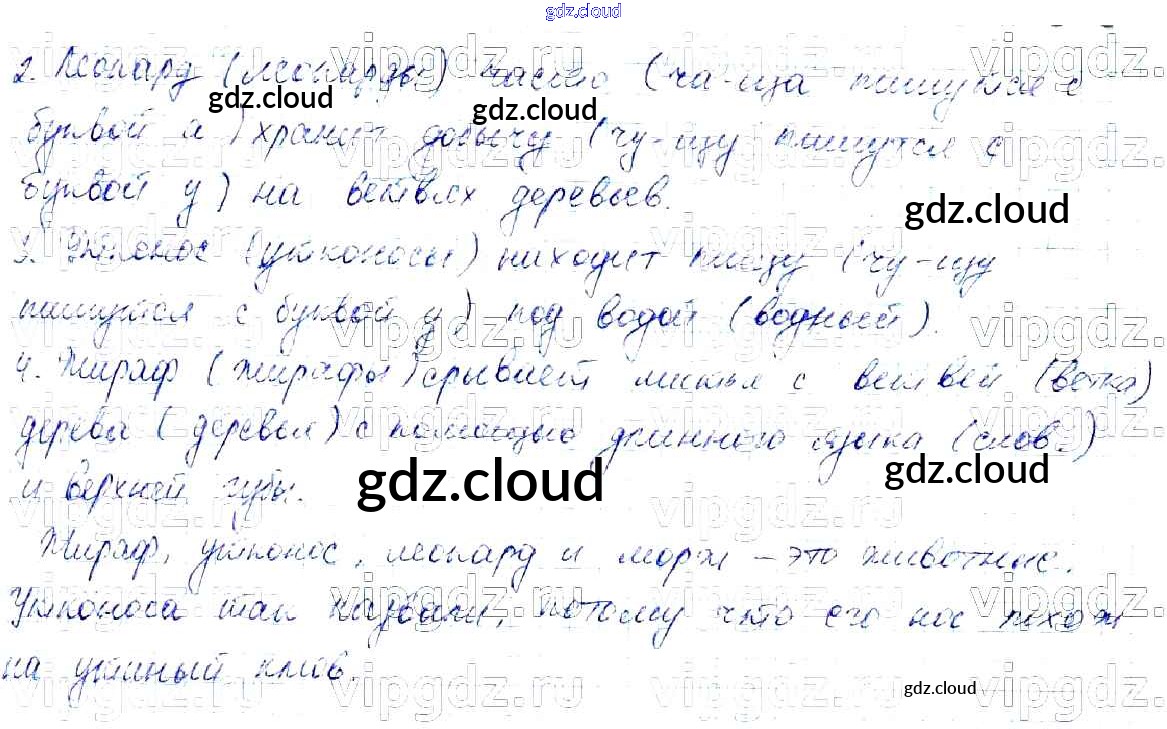 gdz.cloud
2. Леопард (леопарды) часто (ча-ща пишутся с
буквой а) хранит добычу (чу-щу пишутся с
буквой у) на ветвях деревьев.
3. Утконос (утконосы) находит пищу (чу-щу
пишутся с буквой у) под водой (водный).
4. Жираф (жирафы) срывает листья с ветвей (ветка)
дерева (деревья) с помощью длинного языка (слов.)
и верхней губы.
Жираф, утконос, леопард и морж – это животные.
Утконоса так назвали, потому что его нос похож
на утиный клюв.
gdz.cloud
gdz.cloud
gdz.cloud
gdz.cloud
gdz.cloud
gdz.cloud
vipgdz.ru